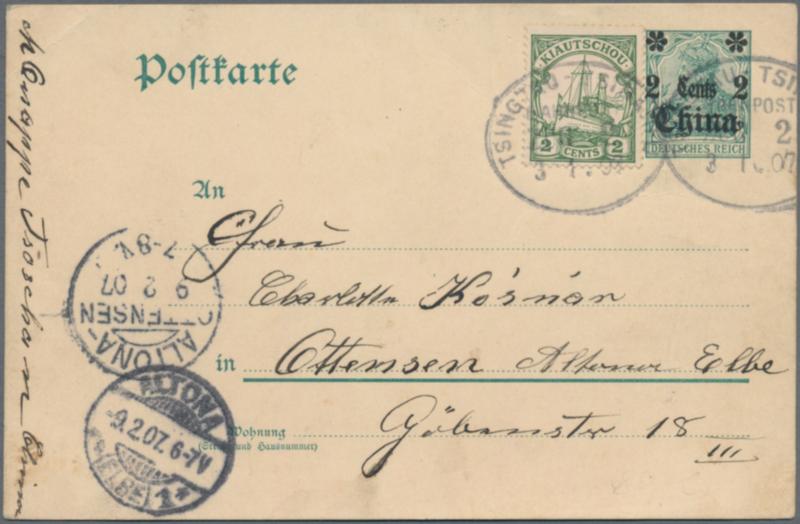 Postkarte
KIAUTSCHOU
2 CENTS 2
2 Cents 2
China
DEUTSCHES REICH
TSINGTAU
TSIN
POST
2
3 1 07
An
Frau
Charlotte Kosnár
in Ottensen Altona Elbe
Wohnung
(Straße und Hausnummer)
Göbenstr 18 III
ALTONA-OTTENSEN
9 2 07
7-8V.
ALTONA
9.2.07. 6-7V
(ELBE)
1*
Knappe Tsoschan China